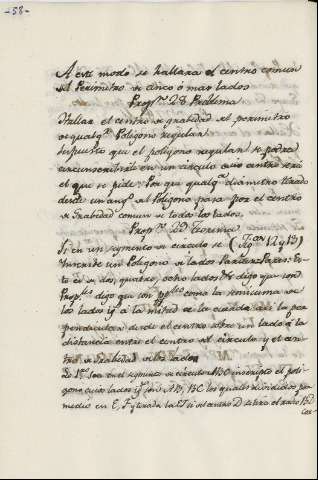 -58-
A este modo se hallara el centro comun
del Perimetro de cinco ó mas lados
Propn. 28 Problema
Hallar el centro de grabedad del perimetro
de qualqr. Poligono regular
Supuesto que el poligono regular se podra
circunscribir en un circulo cuio centro será
el que se pide. Por que qualqr. diámetro tirado
desde un angl. del Poligono pasa por el centro
de Grabedad comun de todos los lados.
Propn. 29 Teorema
Si en un segmento de circulo se (Figas. 12 y 13)
Inscribe un Poligono de lados Pares
es de dos, quatro, ocho lados &c. digo que son
digo que son como la semisuma de
los lados á la mitad de la cuerda así la per
pendicular desde el centro sobre un lado á la
distancia entre el centro del circulo y el cen
tro de Grabedad de los lados
Lo 1º. Sea en el segmento de circulo ABC inscripto el poli
gono cuios lados son AB, BC los quales divididos por
medio en E, F y tirada la EF del centro D se tire el radio BD